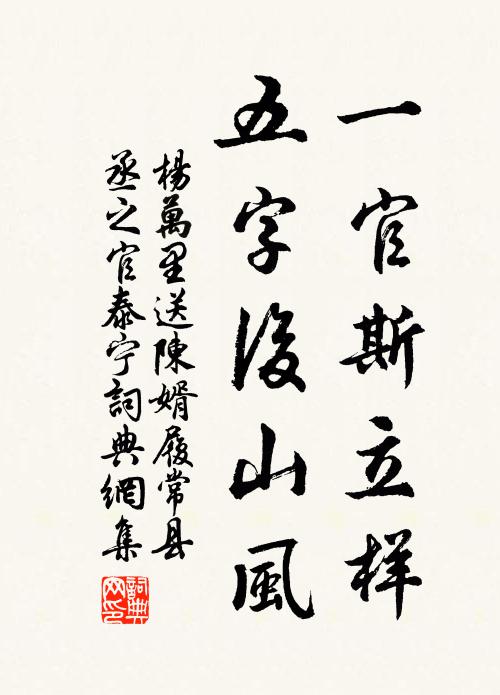 一官斯立样
五字後山風
楊萬里送陳婿履常县
丞之官泰宁詞典網集
詞典網印